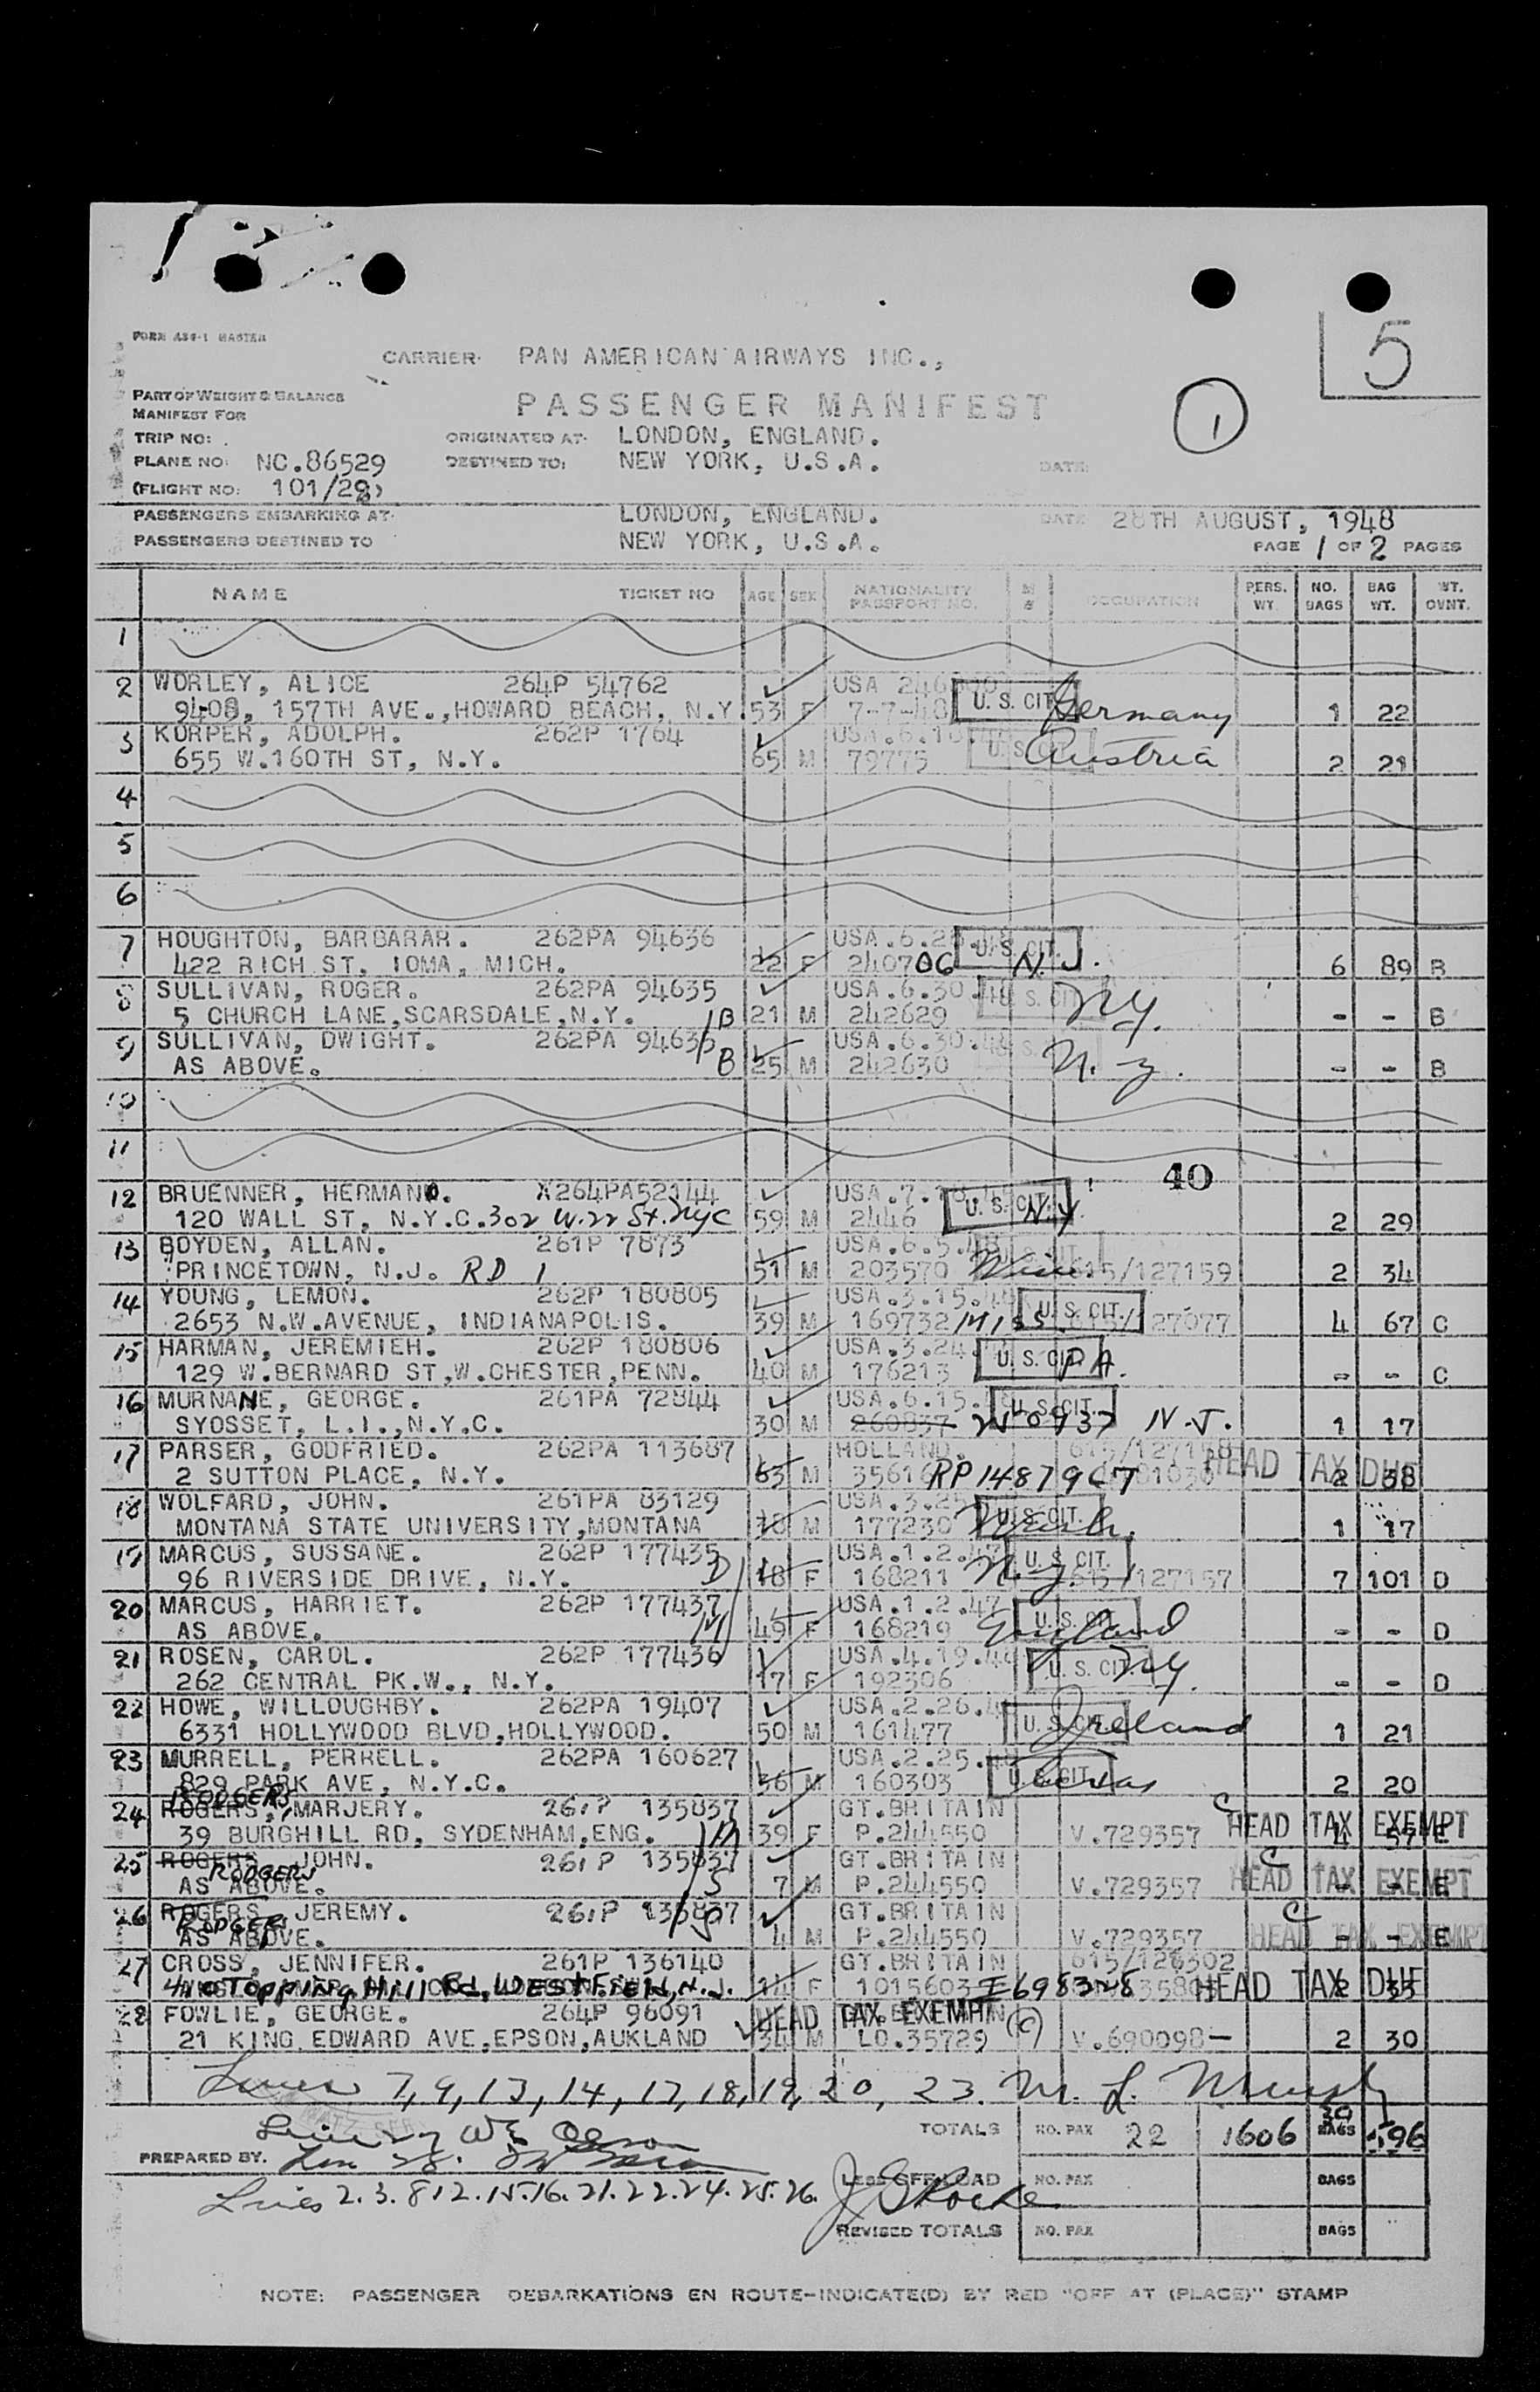 5
FORM 436-1 MASTER
CARRIER PAN AMERICAN AIRWAYS INC.,
PART OF WEIGHT & BALANCE
MANIFEST FOR
PASSENGER MANIFEST
1
TRIP NO:
ORIGINATED AT LONDON, ENGLAND.
PLANE NO: NC.86529
DESTINED TO: NEW YORK, U.S.A.
DATE:
(FLIGHT NO: 101/28)
PASSENGERS EMBARKING AT LONDON, ENGLAND. DATE 28TH AUGUST, 1948
PASSENGERS DESTINED TO NEW YORK, U.S.A. PAGE 1 OF 2 PAGES
NAME TICKET NO AGE SEX NATIONALITY PASSPORT NO. OCCUPATION PERS. WT. NO. BAGS BAG WT. WT. OVNT.
1
2 WORLEY, ALICE 264P 54762 USA
9408, 157TH AVE.,HOWARD BEACH, N.Y. 53 F 7-7-48 U.S. CIT. Germany 1 22
3 KORPER, ADOLPH. 262P 1764
655 W.160TH ST, N.Y. 65 M 79775 U.S. CIT. Austria 2 21
4
5
6
7 HOUGHTON, BARBARAR. 262PA 94636 USA.6.
422 RICH ST, IOMA, MICH. 22 F 240706 U.S. CIT. N.J. 6 89 B
8 SULLIVAN, ROGER. 262PA 94635 USA.6.30.48
5 CHURCH LANE,SCARSDALE,N.Y. B 21 M 242629 N.Y. - - B
9 SULLIVAN, DWIGHT. 262PA 94635 USA.6.30.48
AS ABOVE. B 25 M 242630 N.Y. - - B
10
11
40
12 BRUENNER, HERMAN. X264PA52144 USA.7.
120 WALL ST, N.Y.C. 302 W. 22 St. NYC 59 M 2446 U.S. CIT. N.Y. 2 29
13 BOYDEN, ALLAN. 261P 7873 USA.6.5.48
PRINCETOWN, N.J. RD 1 51 M 203570 615/127159 2 34
14 YOUNG, LEMON. 262P 180805 USA.3.15.
2653 N.W.AVENUE, INDIANAPOLIS. 39 M 169732 MISS U.S. CIT. 615/127077 4 67 C
15 HARMAN, JEREMIEH. 262P 180806 USA.3.24.
129 W.BERNARD ST,W.CHESTER,PENN. 40 M 176213 U.S. CIT. PA. - - C
16 MURNANE, GEORGE. 261PA 72844 USA.6.15.
SYOSSET, L.I.,N.Y.C. 30 M 260837 U.S. CIT. N.J. 1 17
17 PARSER, GODFRIED. 262PA 113687 HOLLAND. 615/127158
2 SUTTON PLACE, N.Y. 63 M RP 148796T HEAD TAX DUE 2 38
18 WOLFARD, JOHN. 261PA 83129 USA.3.25
MONTANA STATE UNIVERSITY,MONTANA 18 M 177230 U.S. CIT. 1 17
19 MARCUS, SUSSANE. 262P 177435 USA.1.2.47
96 RIVERSIDE DRIVE, N.Y. D 18 F 168211 N.Y. U.S. CIT. 615/127157 7 101 D
20 MARCUS, HARRIET. 262P 177437 USA.1.2.47
AS ABOVE. M 49 F 168219 U.S. CIT. England - - D
21 ROSEN, CAROL. 262P 177436 USA.4.19.48
262 CENTRAL PK.W., N.Y. 17 F 192306 U.S. CIT. N.Y. - - D
22 HOWE, WILLOUGHBY. 262PA 19407 USA.2.26.
6331 HOLLYWOOD BLVD,HOLLYWOOD. 50 M 161477 U.S. CIT. Ireland 1 21
23 MURRELL, PERRELL. 262PA 160627 USA.2.25.
829 PARK AVE, N.Y.C. 36 M 160303 U.S. CIT. Texas 2 20
RODGERS
24 ROGERS, MARJERY. 261P 135837 GT.BRITAIN
39 BURGHILL RD, SYDENHAM,ENG. M 39 F P.244550 V.729357 C HEAD TAX EXEMPT 4 57 E
25 ROGERS, JOHN. 261P 135837 GT.BRITAIN
RODGERS
AS ABOVE. S 7 M P.244550 V.729357 C HEAD TAX EXEMPT - - E
26 ROGERS, JEREMY. 261P 135837 GT.BRITAIN
RODGERS
AS ABOVE. S 4 M P.244550 V.729357 C HEAD TAX EXEMPT - - E
27 CROSS, JENNIFER. 261P 136140 GT.BRITAIN 615/126302
410 Topping Hill Rd, WESTFIELD, N.J. 14 F 1015603 I698328 HEAD TAX DUE 2 33
28 FOWLIE, GEORGE. 264P 96091 HEAD TAX EXEMPT (C)
21 KING EDWARD AVE,EPSON,AUKLAND 34 M LO.35729 V.690098 2 30
Lines 7, 9, 13, 14, 17, 18, 19, 20, 23. M. L.
TOTALS NO. PAX 22 1606 30 BAGS 596
Line 27
PREPARED BY. Line 28.
LESS OFFLOAD NO. PAX BAGS
Lines 2. 3. 8 12. 15. 16. 21. 22. 24. 25. 26.
REVISED TOTALS NO. PAX BAGS
NOTE: PASSENGER DEBARKATIONS EN ROUTE-INDICATE(D) BY RED "OFF AT (PLACE)" STAMP